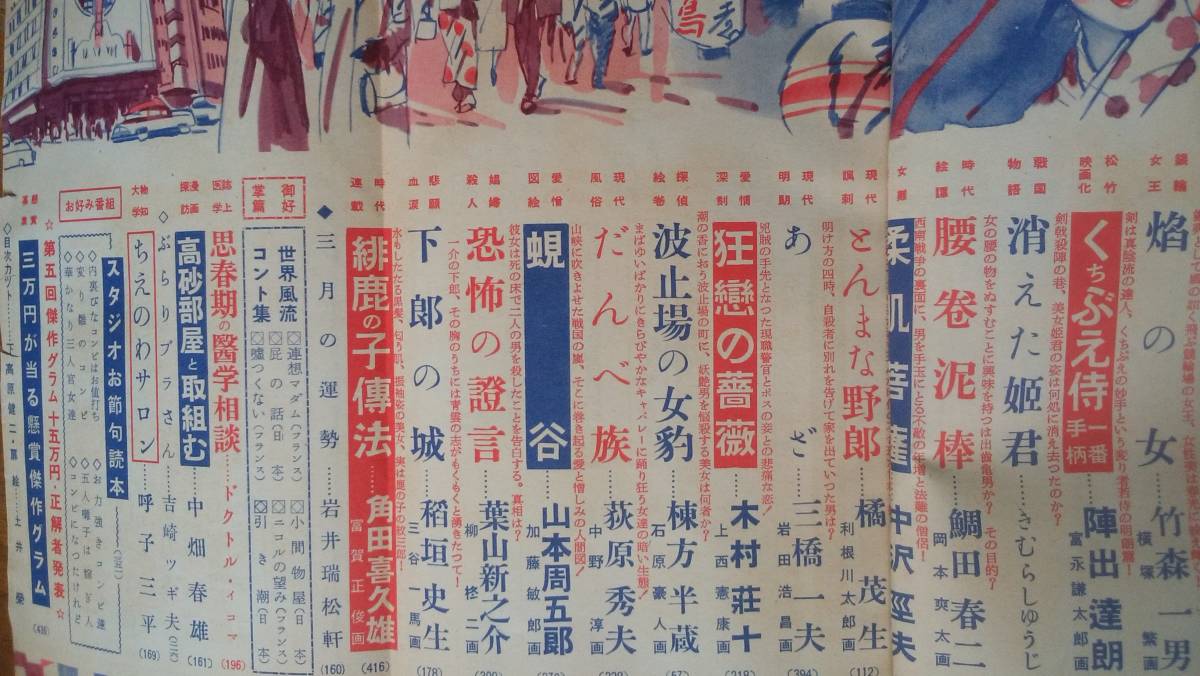 鳥
競輪女王
焰の女……竹森一男
横塚繁画
剣は真陰流の達人、くちぶえの妙手という変り者若侍の明朗篇!
松竹映画化
くちぶえ侍 一番手柄……陣出達朗
富永謙太郎画
剣戟殺陣の巷、美女姫君の姿は何処に消え去つたのか?
戦国物語
消えた姫君……きむらしゆうじ
女の腰の物をぬすむことに興味を持つは出歯亀男か? その目的?
時代絵譚
腰巻泥棒……鯛田春二
岡本爽太画
西南戦争の裏面に、男を手玉にとる不敵の年増と法難の僧侶!
女難
柔肌菩薩 中沢巠夫
現代諷刺
とんまな野郎……橘茂生
利根川太郎画
(112)
明け方の四時、自殺者に別れを告げて家を出ていつた男は?
現代明朗
あざ……三橋一夫
岩田浩昌画
(394)
兇賊の手先となつた現職警官とボスの妾との悲痛な恋!
愛情深刻
狂戀の薔薇……木村荘十
上西憲康画
(218)
潮の香におう波止場の町に、妖艶男を悩殺する美女は何者か?
探偵絵巻
波止場の女豹……棟方半蔵
石原豪人画
(57)
まばゆいばかりにきらびやかなキャバレーに踊り狂う女達の暗い生態!
現代風俗
だんべ族……萩原秀夫
中野淳画
山峡に吹きよせた戦国の嵐、そこに巻き起る愛と憎しみの人間図!
愛憎図絵
蜆谷……山本周五郎
加藤敏郎画
彼女は死の床で二人の男を殺したことを告白する。真相は?
娼婦殺人
恐怖の證言……葉山新之介
柳柊二画
一介の下郎、その胸のうちには青雲の志がもくもくと湧きたつて!
悲願血涙
下郎の城……稲垣史生
三谷一馬画
(178)
水もしたたる黒髪、匂う肌、振袖姿の美女、実は鹿の子の敎三郎!
時代連載
緋鹿の子傳法……角田喜久雄
富賀正俊画
(416)
◆三月の運勢……岩井瑞松軒
(160)
御好掌篇
世界風流コント集
連想マダム(フランス)
小間物屋(日本)
屁の話(日本)
ニコルの望み(フランス)
嘘つくない(フランス)
引き潮(日本)
誌上医学
思春期の醫学相談……ドクトル・イコマ
(196)
漫画探訪
高砂部屋と取組む……中畑春雄
(161)
◇ぶらりブラさん……吉崎ッギ夫
物知大学
ちえのわサロン……呼子三平
(169)
お好み番組
スタジオお節句読本
◇内裏びなコンビはお値打ち
◇お力強きコンビ連
◇変り雛のコンビ
◇五人囃子は稼ぎ人
◇華かなり三人官女達
◇コンビになつたけれど
☆第五回傑作グラム十五万円・正解者発表☆
懸賞募集
三万円が当る懸賞傑作グラム
(436)
◇目次カット……下高原健二・扉絵……土井榮